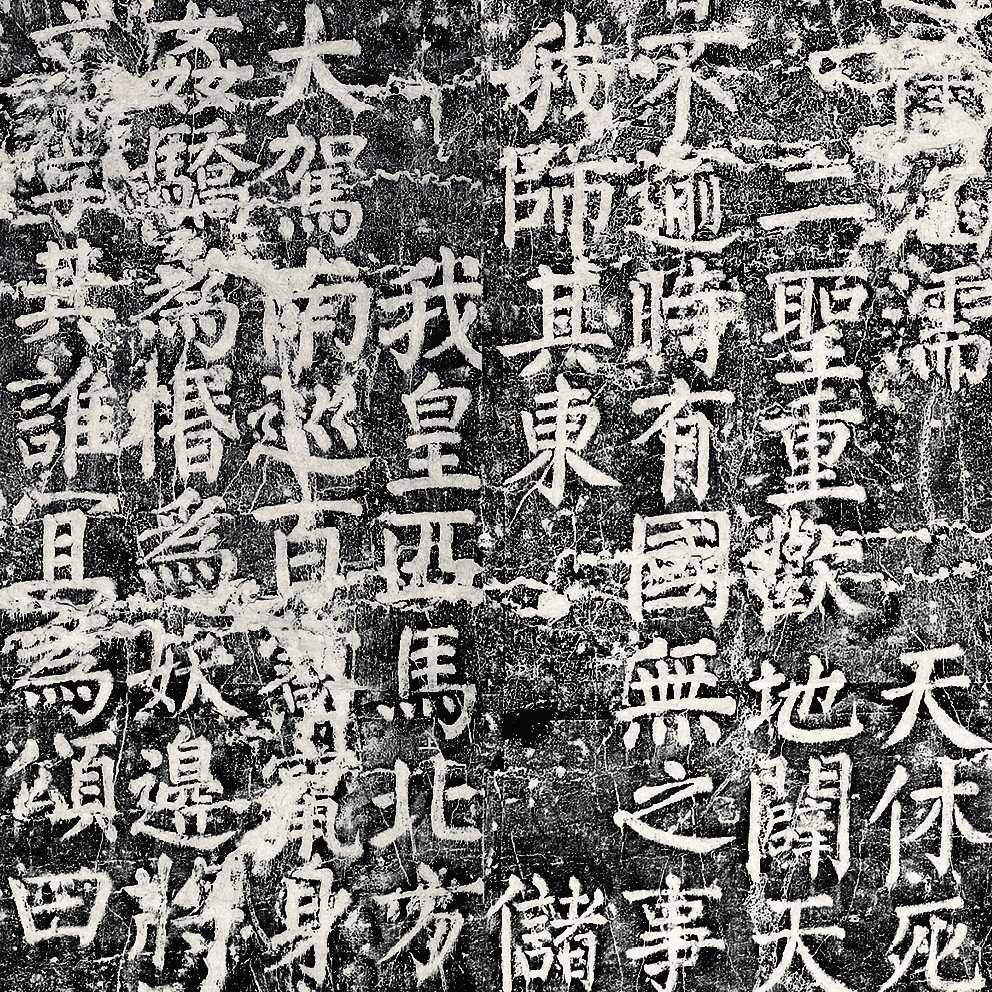 涵濡天休死
二聖重歡地闢天
不逾時有國無之事
我師其東儲
我皇匹馬北方
大駕南巡百寮竄身
姦驕為惛為妖邊將
文學其誰宜為頌曰